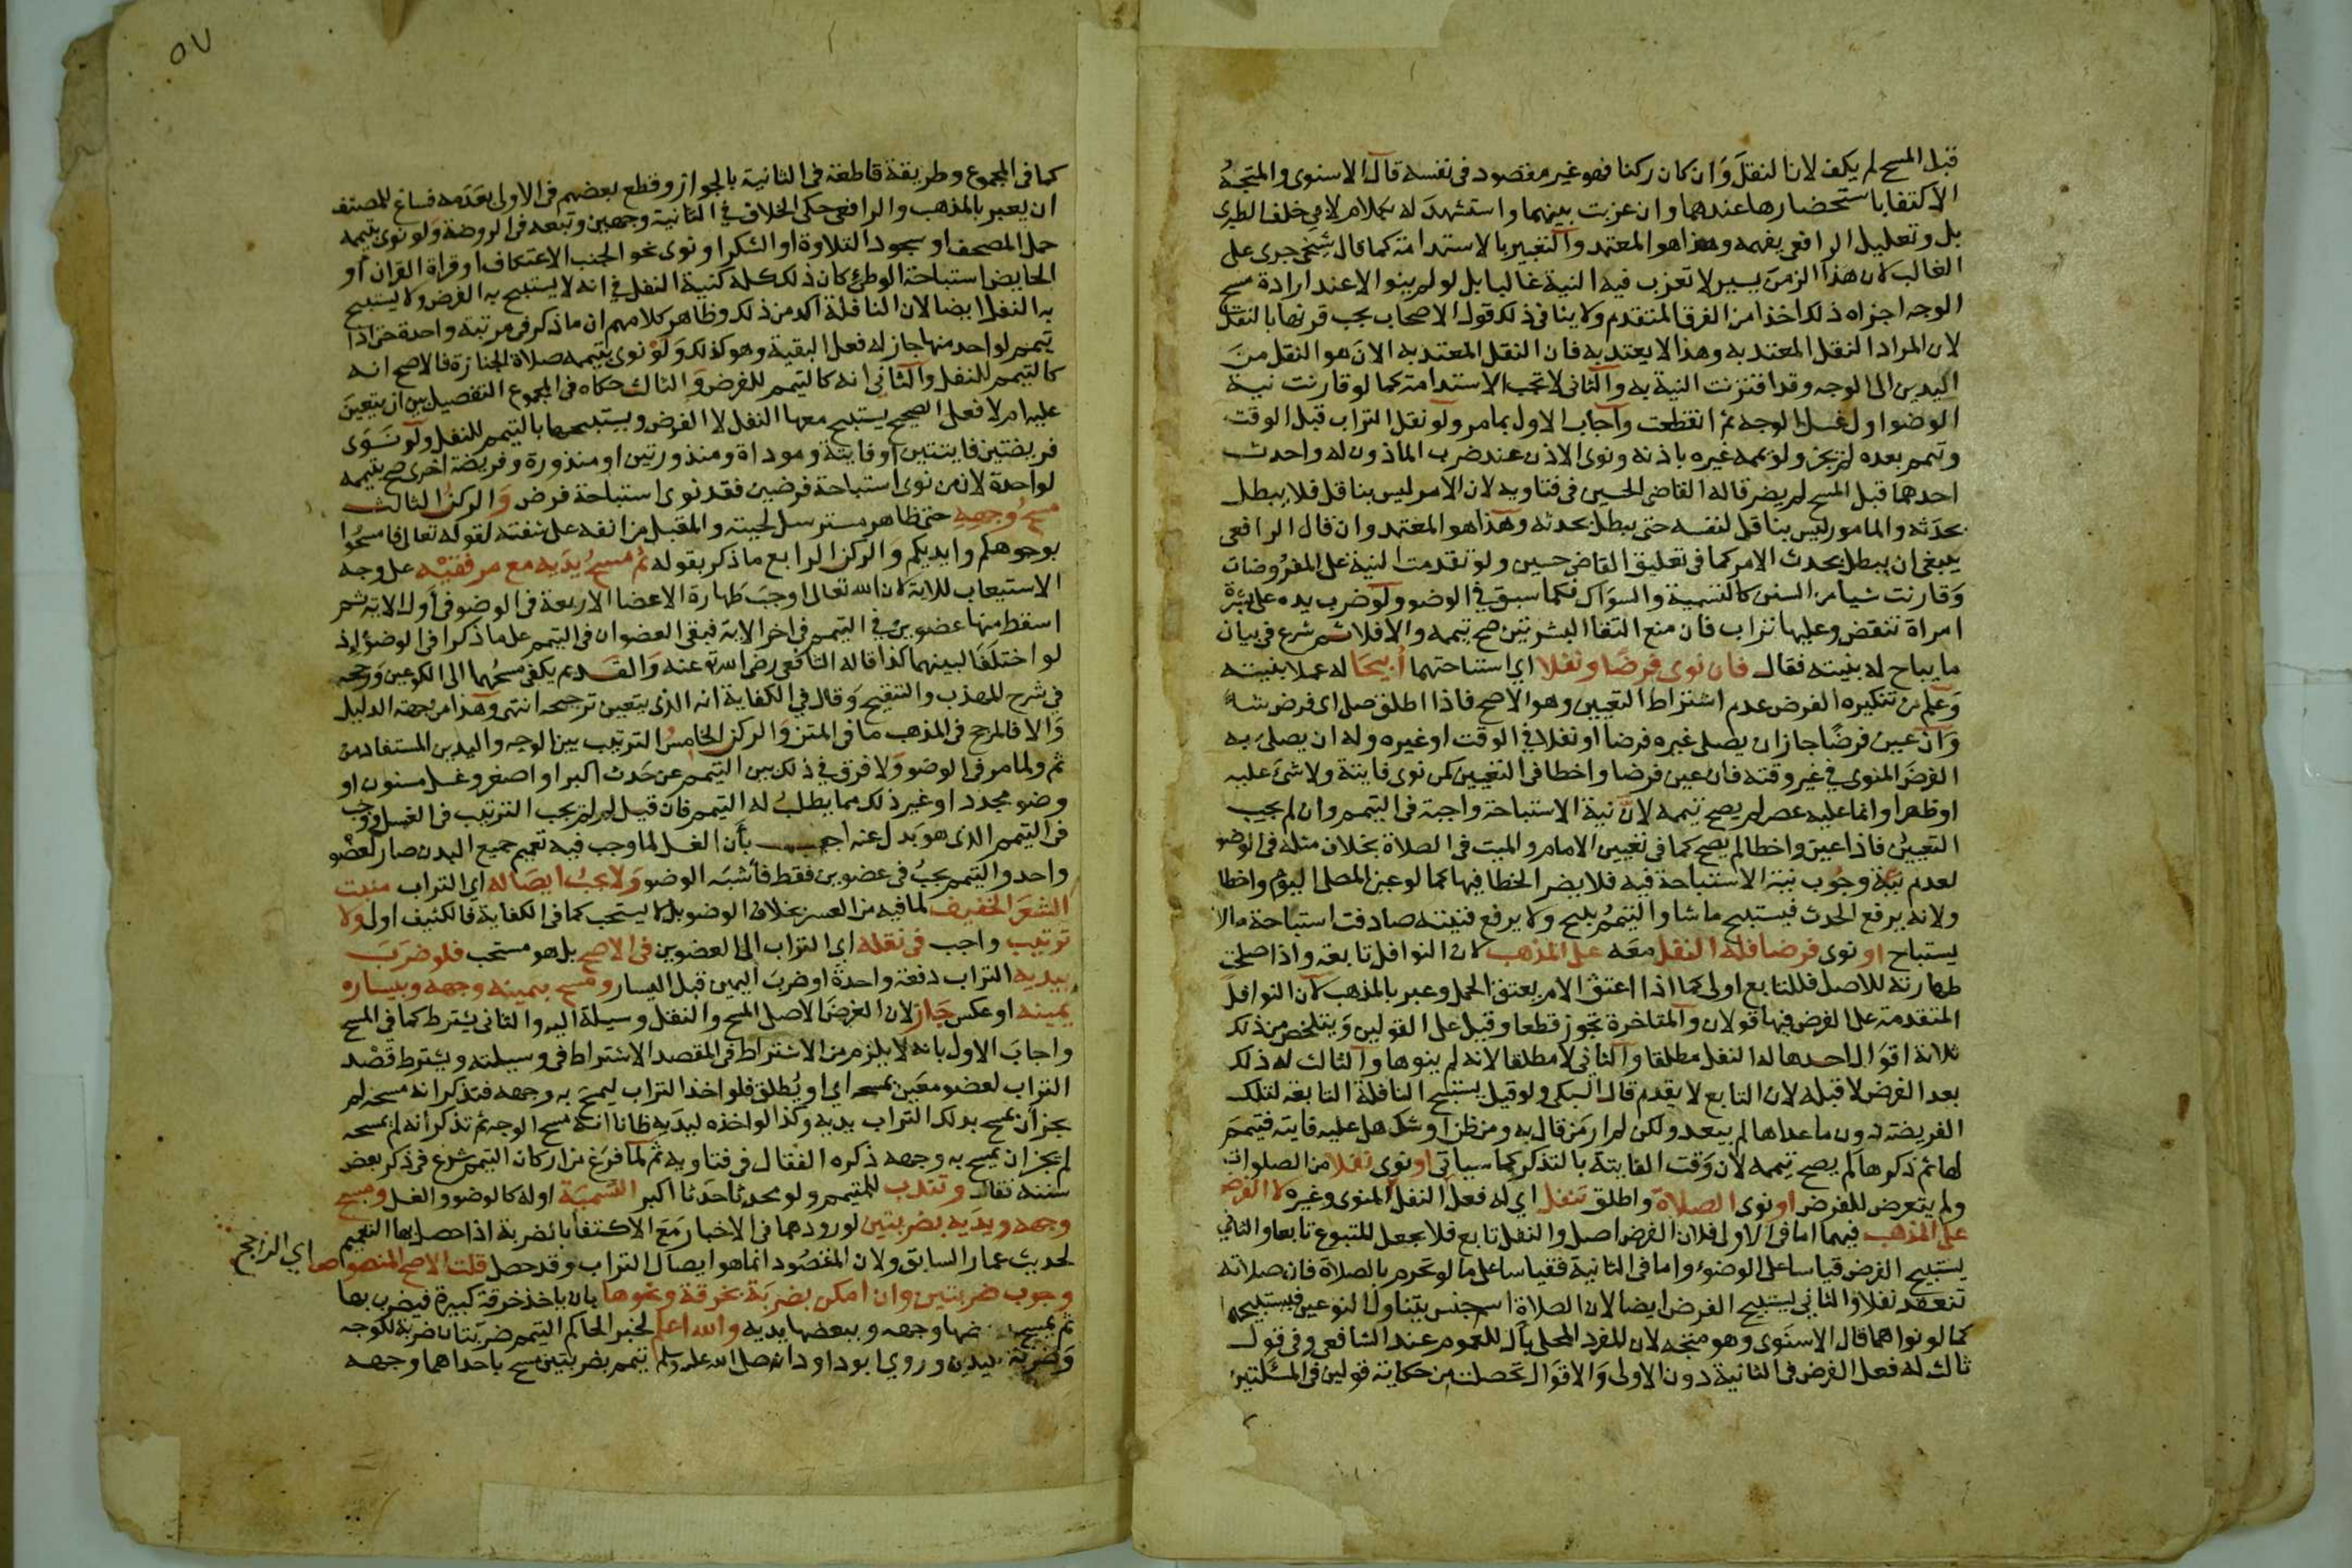 قبل المسح لم يكف لان النقل وان كان ركنا فهو غير مقصود في نفسه قال الاسنوي والمتجه
الاكتفا باستحضارها عندهما وان عزبت بينهما واستشهد له بكلام لابي خلف الطبري
بل وتعليل الرافعي يفهمه وهذا هو المعتمد والتعبير بالاستدامة كما قال شيخي جرى على
الغالب لان هذا الزمن يسير لا تعزب فيه النية غالبا بل لو لم ينو الا عند ارادة مسح
الوجه اجزاه ذلك اخذا من الفرق المتقدم ولا ينافي ذلك قول الاصحاب يجب قرنها بالنقل
لان المراد النقل المعتد به وهذا لا يعتد به فان النقل المعتد به الان هو النقل من
اليدين الى الوجه وقد اقترنت النية به والثاني لا تجب الاستدامة كما لو قارنت نية
الوضو اول غسل الوجه ثم انقطعت واجاب الاول بما مر ولو نقل التراب قبل الوقت
وتيمم بعده لم يجز ولو يممه غيره باذنه ونوى الاذن عند ضرب الماذون له واحدث
احدهما قبل المسح لم يضر قاله القاضي الحسين في فتاويه لان الامر ليس بناقل فلا يبطل
بحدثه والمامور ليس بناقل لنفسه حتى يبطل بحدثه وهذا هو المعتمد وان قال الرافعي
ينبغي ان يبطل بحدث الامر كما في تعليق القاضي حسين ولو تقدمت النية على المفروضات
وقارنت شيا من السنن كالتسمية والسواك فكما سبق في الوضو ولو ضرب يده على بشرة
امراة تنقض وعليها تراب فان منع التقا البشرتين صح تيممه والا فلا ثم شرع في بيان
ما يباح له بنيته فقال فان نوى فرضا ونفلا اي استباحتهما ابيحا له عملا بنيته
وعلم من تنكيره الفرض عدم اشتراط التعيين وهو الاصح فاذا اطلق صلى اى فرض شا
وان عين فرضا جاز ان يصلي غيره فرضا او نفلا في الوقت او غيره وله ان يصلى به
الفرض المنوي في غير وقته فان عين فرضا واخطا في التعيين كمن نوى فايتة ولا شئ عليه
او ظهرا وانما عليه عصر لم يصح تيممه لان نية الاستباحة واجبة في التيمم وان لم يجب
التعيين فاذا عين واخطا لم يصح كما في تعيين الامام والميت في الصلاة بخلاف مثله في الوضو
لعدم وجوب نية الاستباحة فيه فلا يضر الخطا فيها كما لو عين المصلى اليوم واخطا
ولانه يرفع الحدث فيستبيح ما شا والتيمم يبيح ولا يرفع فنيته صادفت استباحة مالا
يستباح او نوى فرضا فله النفل معه على المذهب لان النوافل تابعة واذا صلحت
طهارته للاصل فللتابع اولى كما اذا اعتق الام يعتق الحمل وعبر بالمذهب لان النوافل
المتقدمة على الفرض فيها قولان والمتاخرة تجوز قطعا وقيل على القولين ويتلخص من ذلك
ثلاثة اقوال احدها له النفل مطلقا والثاني لا مطلقا لانه لم ينوها والثالث له ذلك
بعد الفرض لا قبله لان التابع لا يقدم قال السبكي ولو قيل يستبيح النافلة التابعة لتلك
الفريضة دون ما عداها لم يبعد ولكن لم ار من قال به ومن ظن او شك هل عليه فايتة فتيمم
لها ثم ذكرها لم يصح تيممه لان وقت الفايتة بالتذكر كما سياتي او نوى نفلا من الصلوات
ولم يتعرض للفرض او نوى الصلاة واطلق تنفل اي له فعل النفل المنوى وغيره لا الفرض
على المذهب فيهما اما في الاولى فلان الفرض اصل والنفل تابع فلا يجعل للمتبوع تابعا والثاني
يستبيح الفرض قياسا على الوضوء واما في الثانية فقياسا على ما لو تحرم بالصلاة فان صلاته
تنعقد نفلا والثاني يستبيح الفرض ايضا لان الصلاة اسم جنس يتناول النوعين فيستبيحهما
كما لو نواهما قال الاسنوي وهو متجه لان المفرد المحلى بال للعموم عند الشافعي وفي قول
ثالث له فعل الفرض في الثانية دون الاولى والاقوال تحصلت من حكاية قولين في المسئلتين
٥٧
كما في المجموع وطريقة قاطعة في الثانية بالجواز وقطع بعضهم في الاولى بعدمه فساغ للمصنف
ان يعبر بالمذهب والرافعي حكى الخلاف في الثانية وجهين وتبعه في الروضة ولو نوى بتيممه
حمل المصحف او سجود التلاوة او الشكر او نوى نحو الجنب الاعتكاف او قراة القران او
الحايض استباحة الوطئ كان ذلك كله كنية النفل في انه لا يستبيح به الفرض ولا يستبيح
به النفل ايضا لان النافلة اكد من ذلك وظاهر كلامهم ان ما ذكر في مرتبة واحدة حتى اذا
تيمم لواحد منها جاز له فعل البقية وهو كذلك ولو نوى بتيممه صلاة الجنازة فالاصح انه
كالتيمم للنفل والثاني انه كالتيمم للفرض والثالث حكاه في المجموع التفصيل بين ان يتعين
عليه ام لا فعلى الصحيح يستبيح معها النفل لا الفرض ويستبيحها بالتيمم للنفل ولو نوى
فريضتين فايتتين او فايتة وموداة ومنذورتين او منذورة وفريضة اخرى صح تيممه
لواحدة لان من نوى استباحة فرضين فقد نوى استباحة فرض والركن الثالث
مسح وجهه حتى ظاهر مسترسل لحيته والمقبل من انفه على شفته لقوله تعالى فامسحوا
بوجوهكم وايديكم والركن الرابع ما ذكر بقوله ثم مسح يديه مع مرفقيه على وجه
الاستيعاب للاية لان الله تعالى اوجب طهارة الاعضا الاربعة في الوضو في اول الاية ثم
اسقط منها عضوين في التيمم في اخر الاية فبقى العضوان في التيمم على ما ذكرا في الوضوء إذ
لو اختلفا لبينهما كذا قاله الشافعي رضي الله عنه والقديم يكفي مسحهما الى الكوعين ورجحه
في شرح المهذب والتنقيح وقال في الكفاية انه الذي يتعين ترجيحه انتهى وهذا من جهة الدليل
والا فالمرجح في المذهب ما في المتن والركن الخامس الترتيب بين الوجه واليدين المستفاد من
ثم ولما مر في الوضو ولا فرق في ذلك بين التيمم عن حدث اكبر او اصغر وغسل مسنون او
وضو مجدد او غير ذلك مما يطلب له التيمم فان قيل لم لم يجب الترتيب في الغسل ووجب
في التيمم الذي هو بدل عنه اجيب بأن الغسل لما وجب فيه تعميم جميع البدن صار كعضو
واحد والتيمم يجب في عضوين فقط فأشبه الوضو ولا يجب ايصاله اي التراب منبت
الشعر الخفيف لما فيه من العسر بخلاف الوضو بل لا يستحب كما في الكفاية فالكثيف اولى ولا
ترتيب واجب في نقله اي التراب الى العضوين في الاصح بل هو مستحب فلو ضرب
بيديه التراب دفعة واحدة او ضرب اليمين قبل اليسار ومسح بيمينه وجهه وبيساره
يمينه او عكس جاز لان الغرض الاصلي المسح والنقل وسيلة اليه والثاني يشترط كما في المسح
واجاب الاول بانه لا يلزم من الاشتراط في المقصد الاشتراط في وسيلته ويشترط قصد
التراب لعضو معين يمسحه اي او يُطلق فلو اخذ التراب ليمسح به وجهه فتذكر انه مسحه لم
يجز أن يمسح بذلك التراب يديه وكذا لو اخذه ليديه ظانا انه مسح الوجه ثم تذكر انه لم يمسحه
لم يجز ان يمسح به وجهه ذكره القفال في فتاويه ثم لما فرغ من اركان التيمم شرع في ذكر بعض
سننه فقال وتندب للمتيمم ولو محدثا حدثا اكبر التسمية اوله كالوضو والغسل ومسح
وجهه ويديه بضربتين لورودهما في الاخبار مع الاكتفا بضربة اذا حصل بها التعميم
لحديث عمار السابق ولان المقصود انما هو ايصال التراب وقد حصل قلت الاصح المنصوص اي الراجح
وجوب ضربتين وان امكن بضربة بخرقة ونحوها بان ياخذ خرقة كبيرة فيضرب بها
ثم يمسح ببعضها وجهه وببعضها يديه والله اعلم لخبر الحاكم التيمم ضربتان ضربة للوجه
وضربة لليدين وروى ابو داود انه صلى الله عليه وسلم تيمم بضربتين مسح باحداهما وجهه